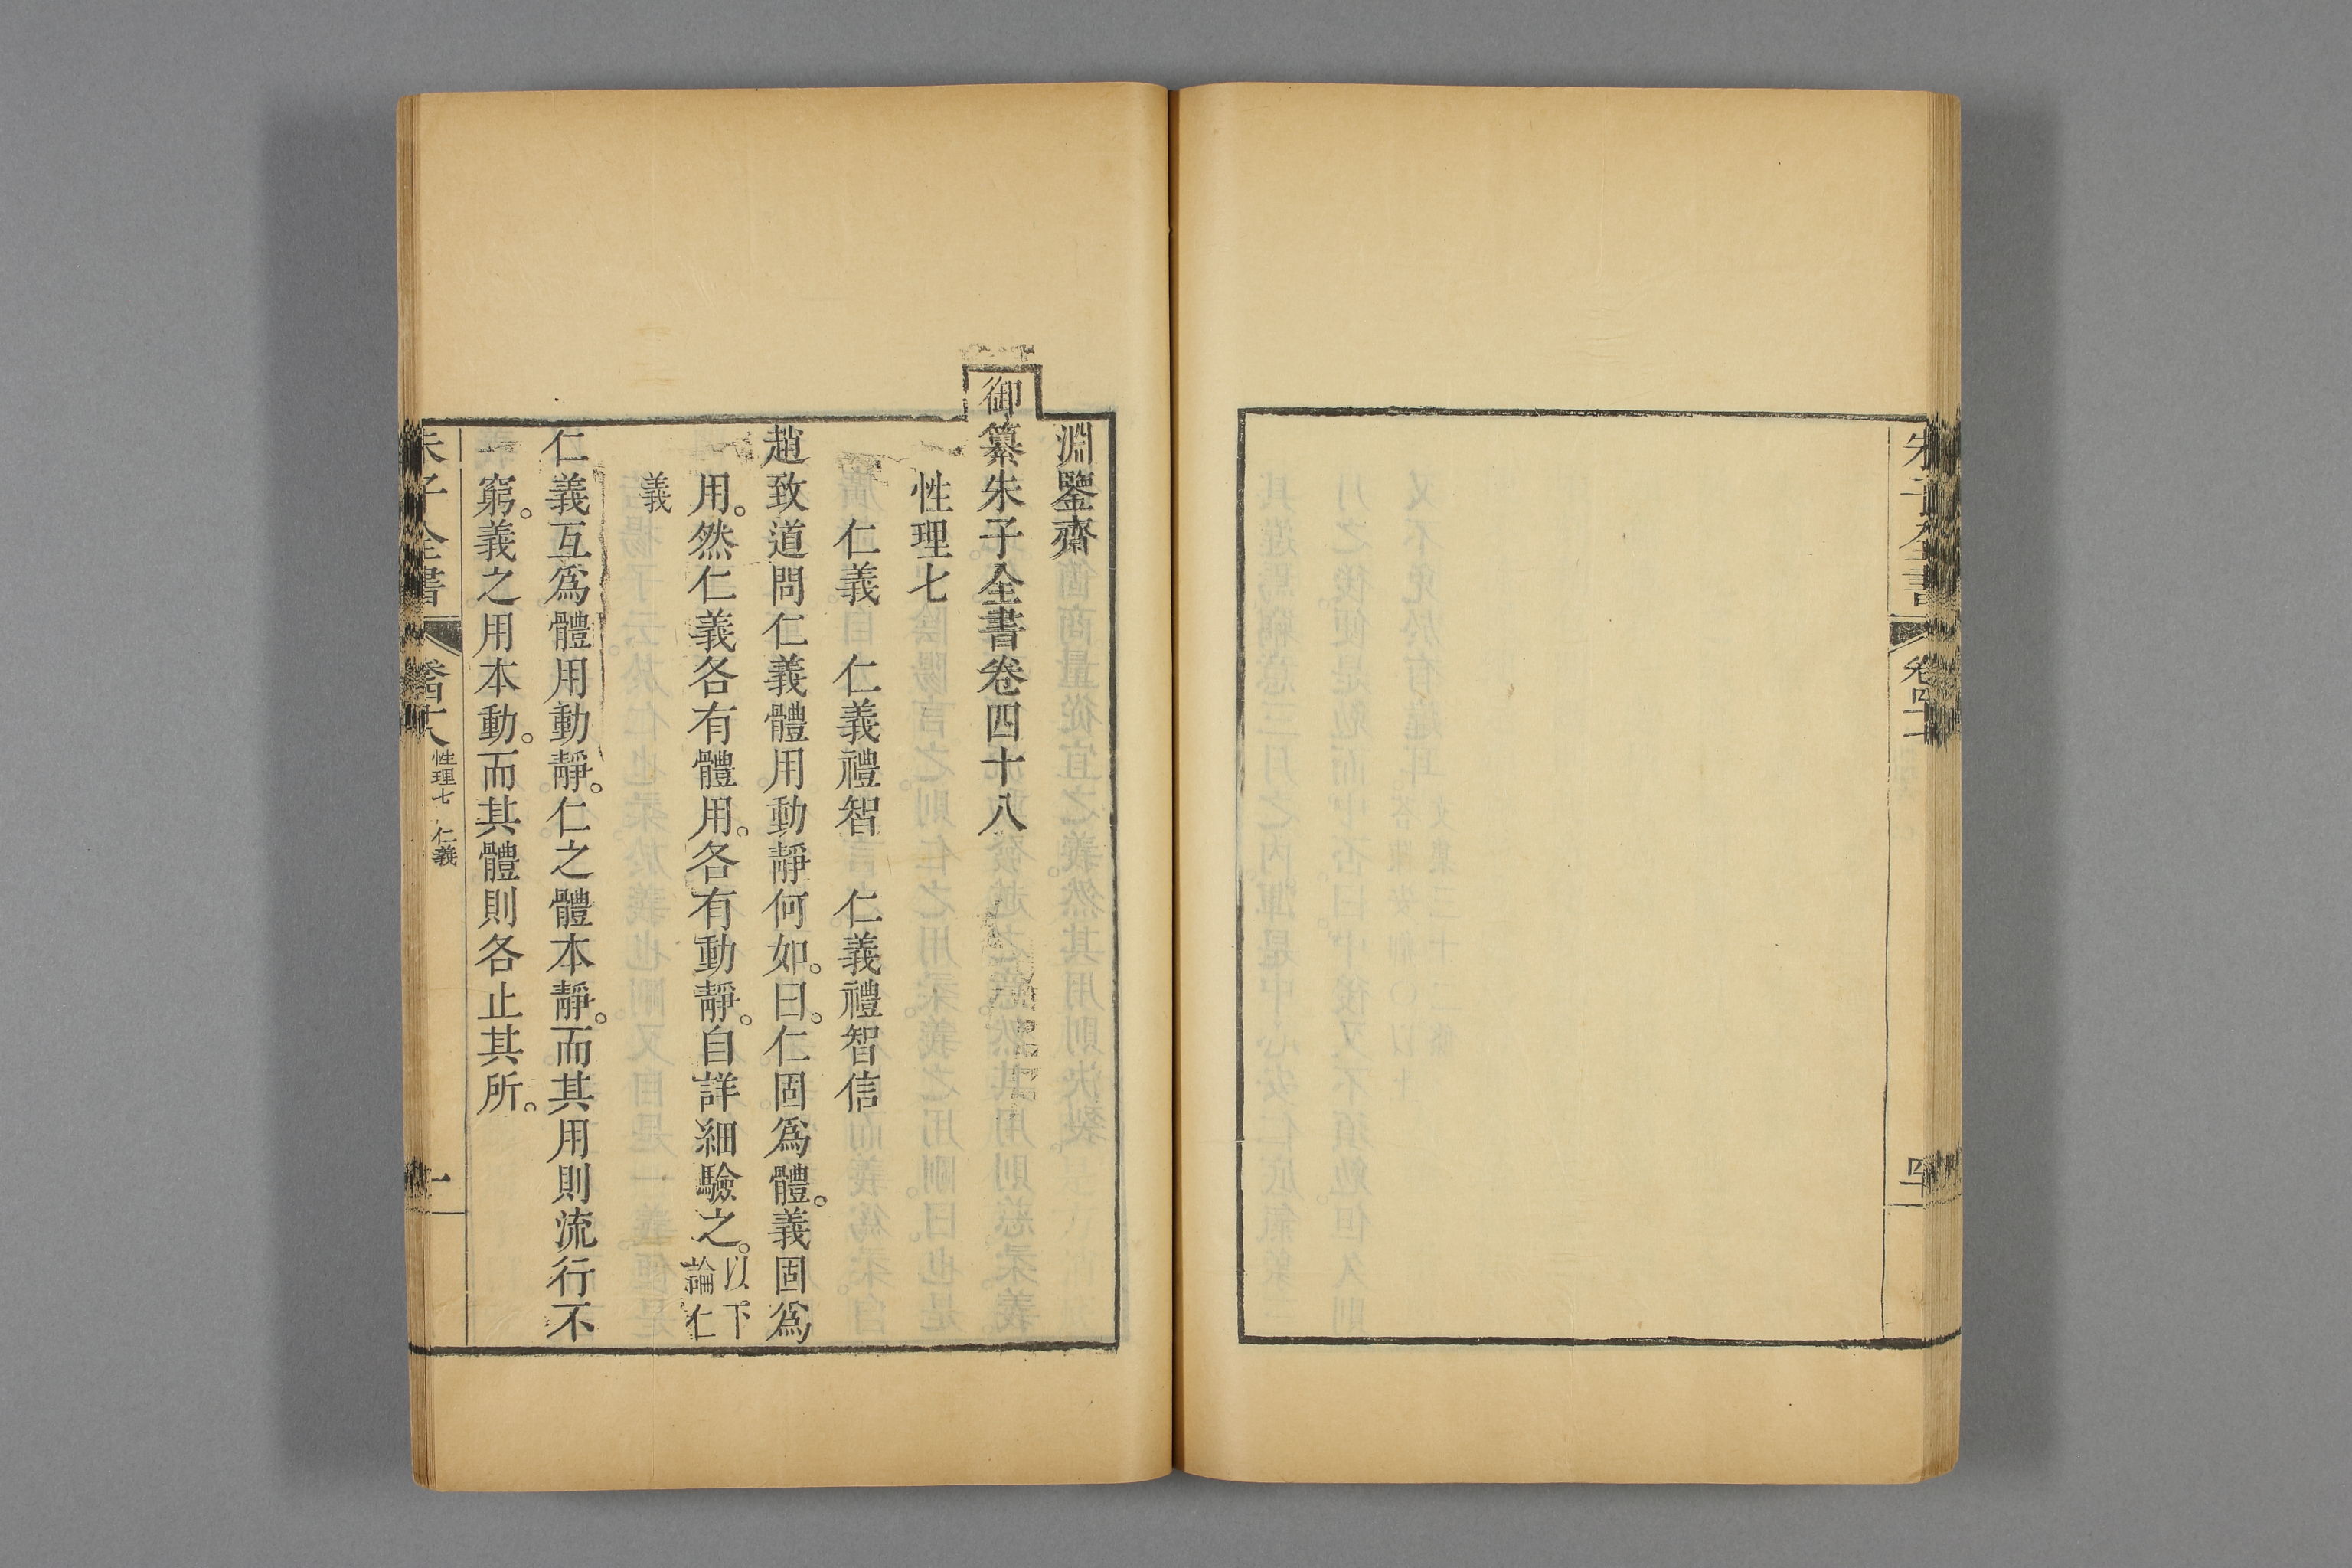 朱子全書 卷四十七 四十
淵鑒齋
御纂朱子全書卷四十八
性理七
仁義 仁義禮智 仁義禮智信
趙致道問仁義體用動靜何如。曰。仁固爲體。義固爲
用。然仁義各有體用。各有動靜。自詳細驗之。以下論仁
義
仁義互爲體用動靜。仁之體本靜。而其用則流行不
窮。義之用本動。而其體則各止其所。
朱子全書 卷四十八 性理七 仁義 一